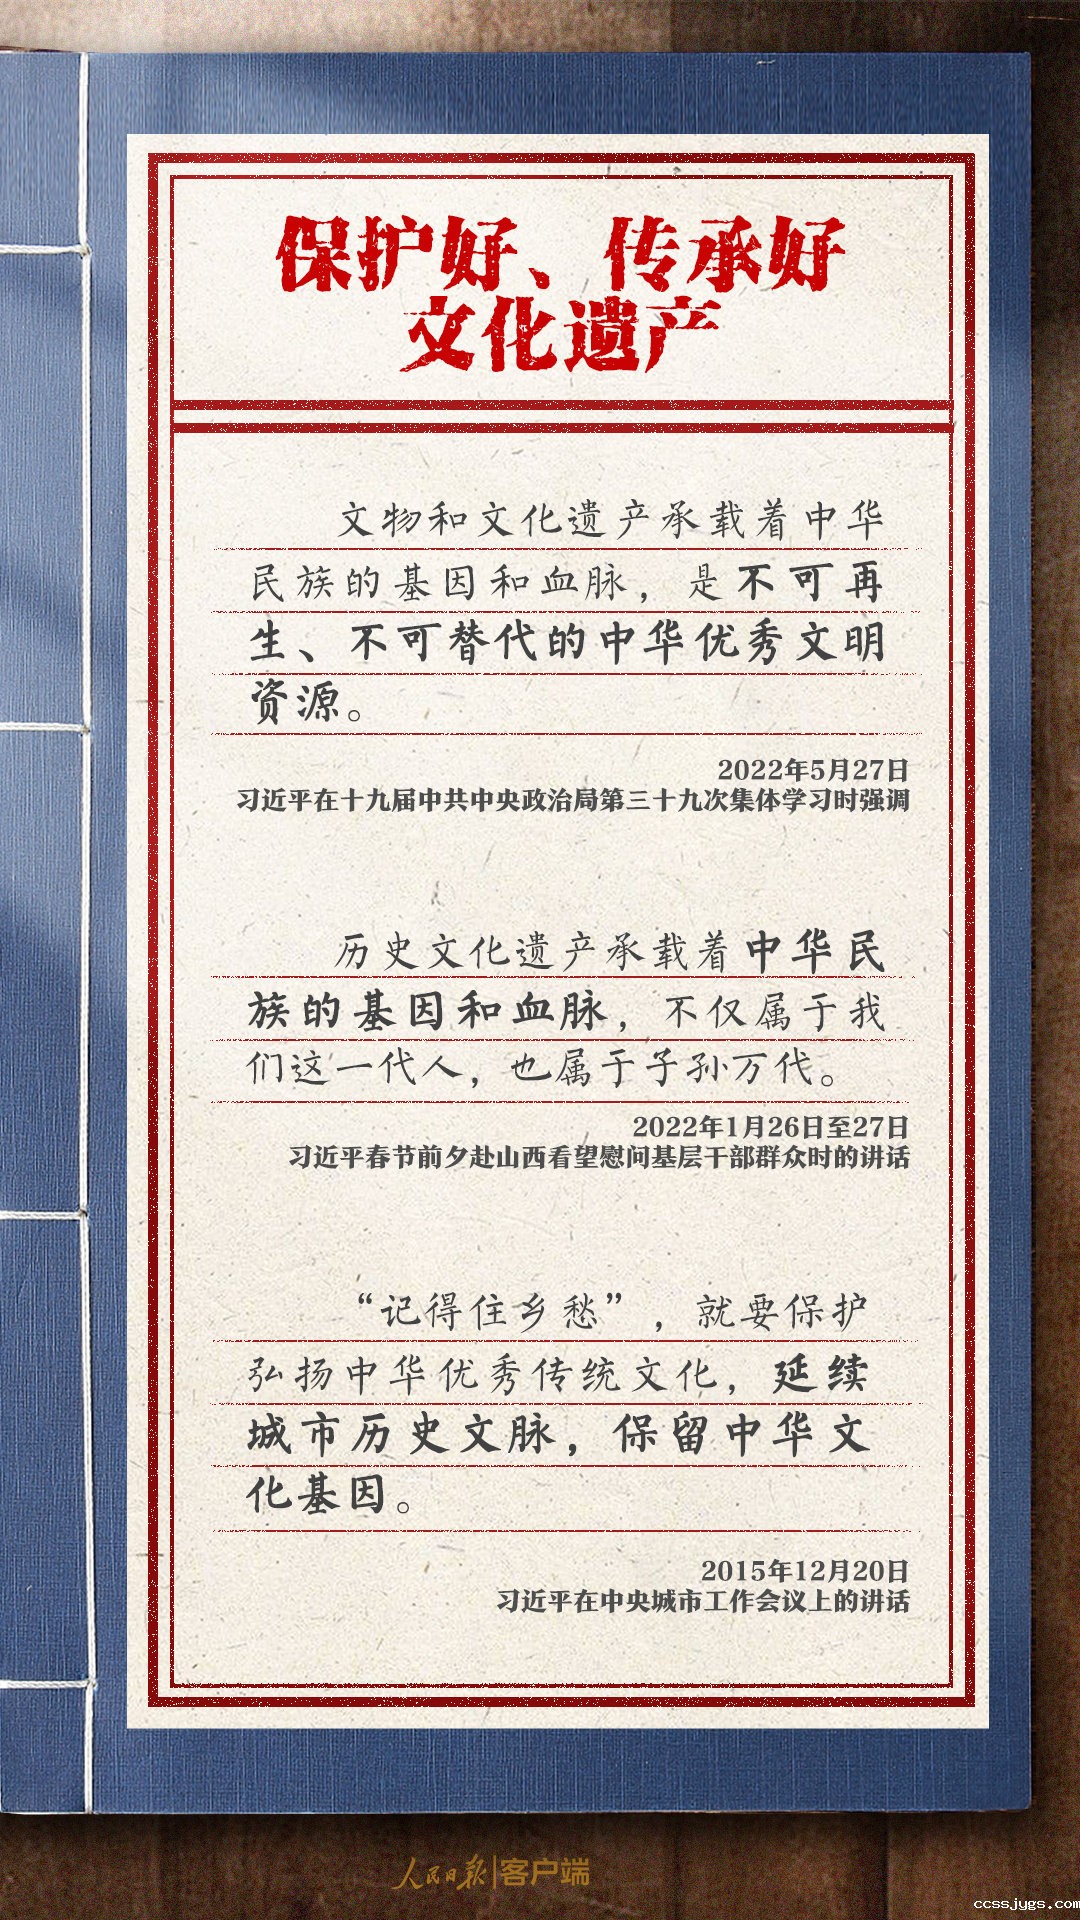 保护好、传承好
文化遗产
文物和文化遗产承载着中华
民族的基因和血脉，是不可再
生、不可替代的中华优秀文明
资源。
2022年5月27日
习近平在十九届中共中央政治局第三十九次集体学习时强调
历史文化遗产承载着中华民
族的基因和血脉，不仅属于我
们这一代人，也属于子孙万代。
2022年1月26日至27日
习近平春节前夕赴山西看望慰问基层干部群众时的讲话
“记得住乡愁”，就要保护
弘扬中华优秀传统文化，延续
城市历史文脉，保留中华文
化基因。
2015年12月20日
习近平在中央城市工作会议上的讲话
人民日报|客户端
ccssjygs.com